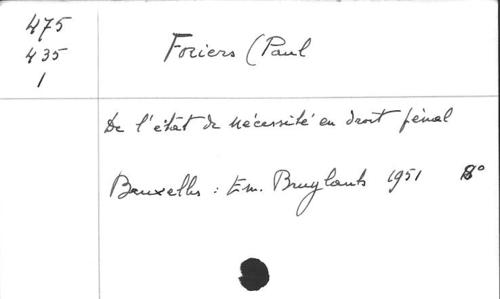 475
435
1
Foriers (Paul
De l'état de nécessité en droit pénal
Bruxelles : Em. Bruylants 1951 8°